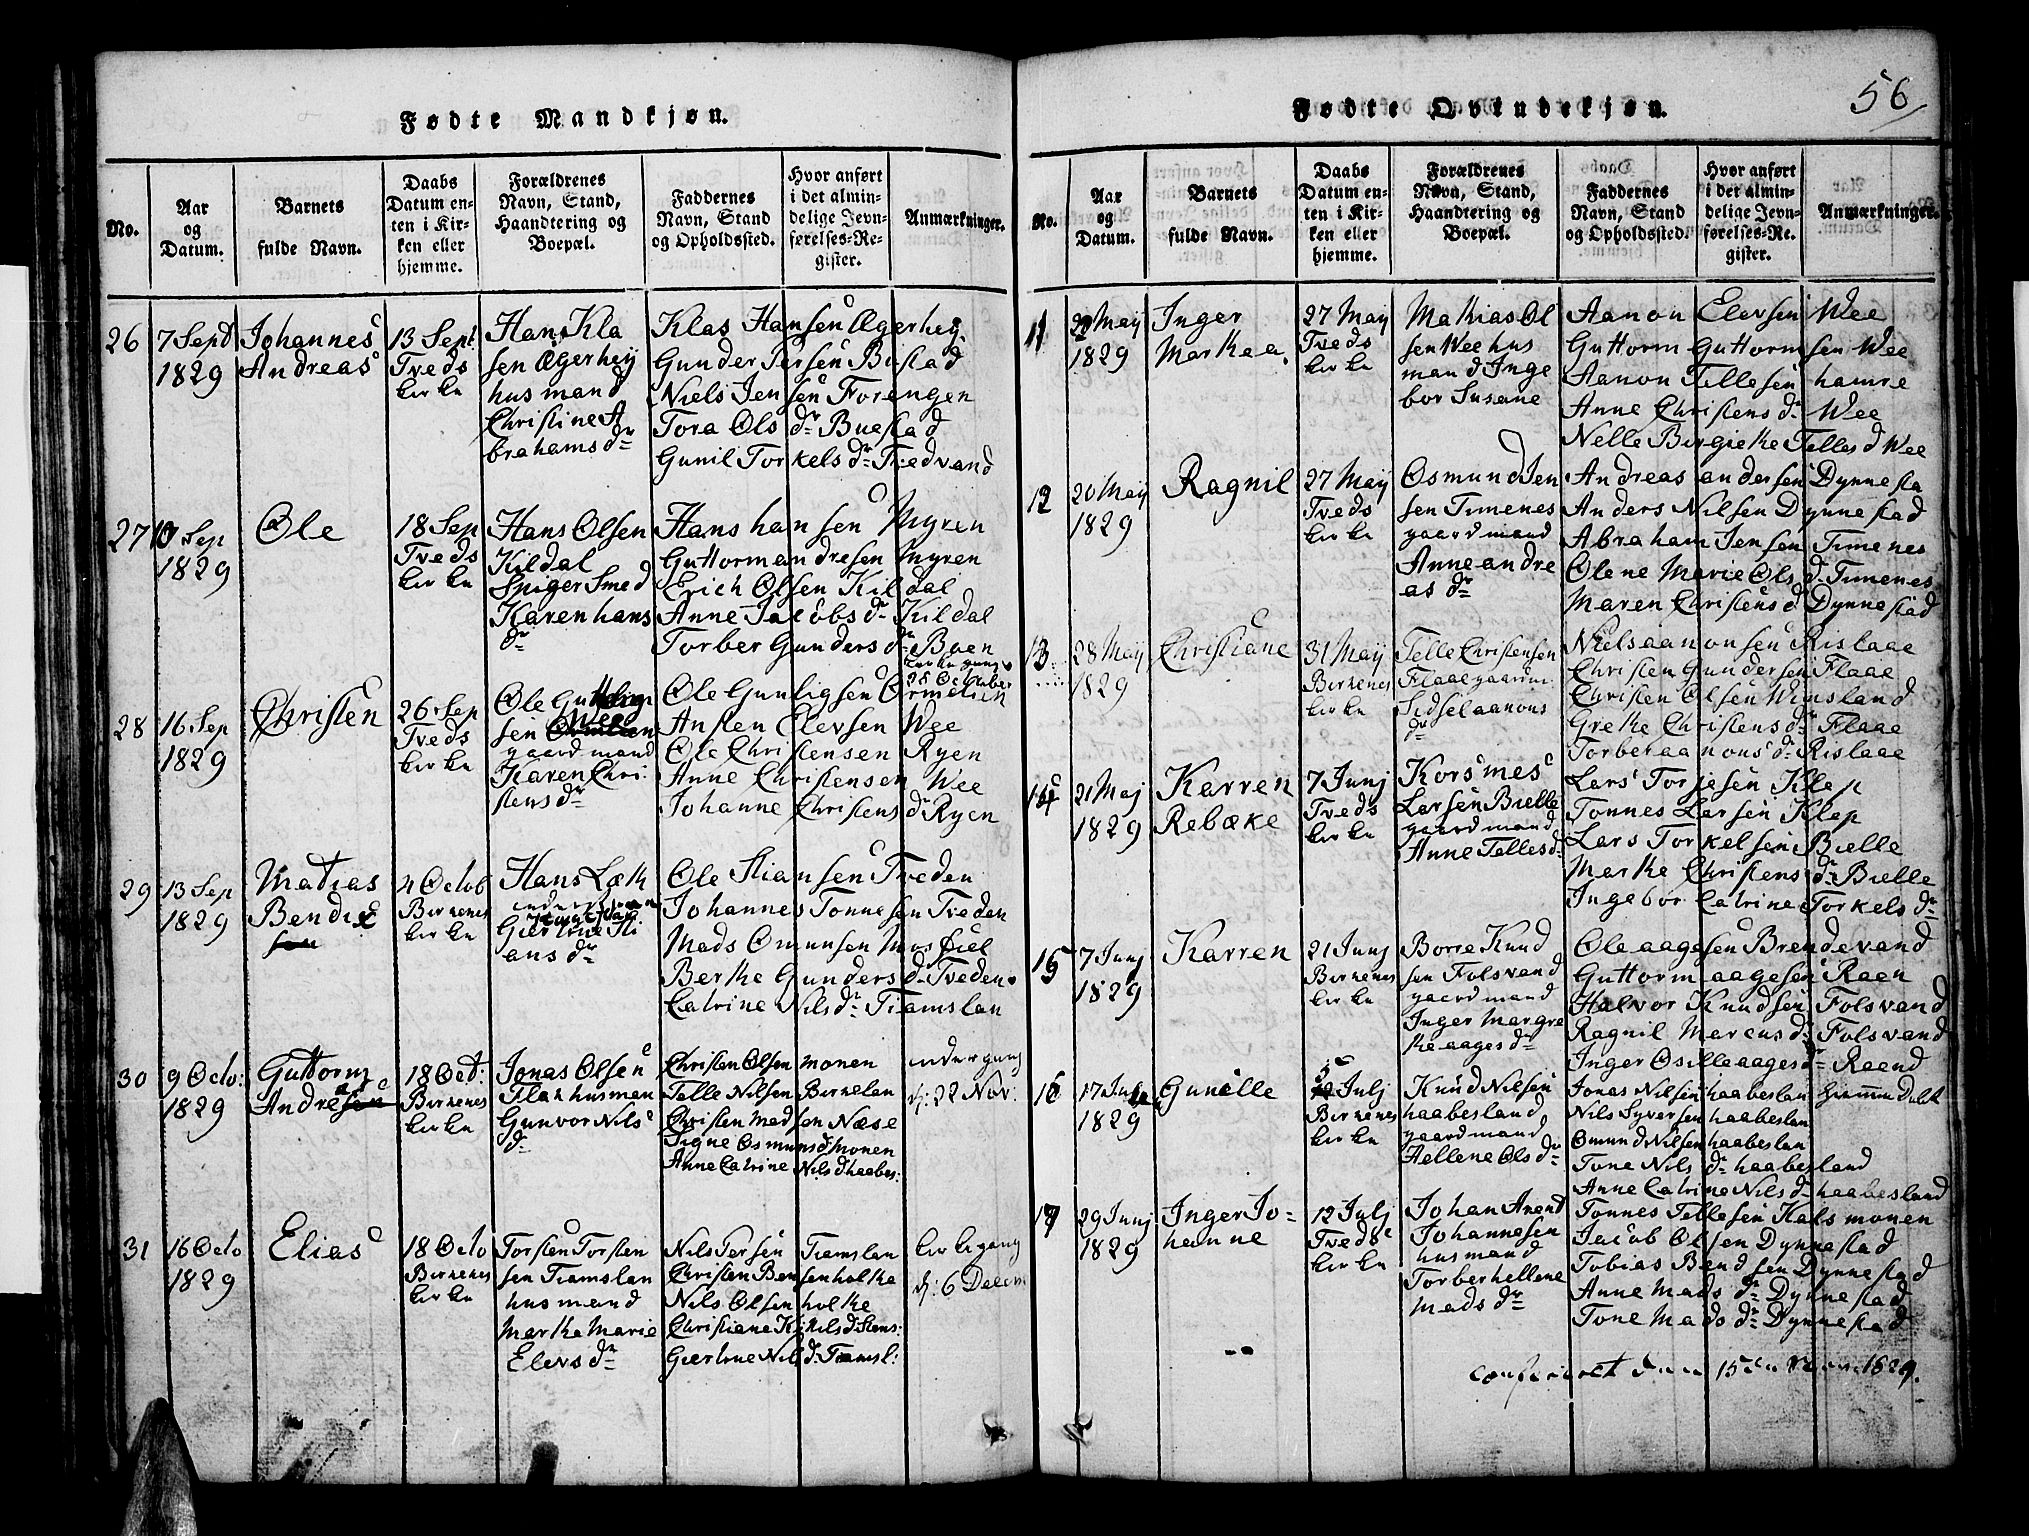 56
Fødte Mandkjøn.
No.
Aar
og
Datum.
Barnets
fulde Navn.
Daabs
Datum en-
ten i Kir-
ken eller
hjemme.
Forældrenes
Navn, Stand,
Haandtering og
Boepæl.
Faddernes
Navn, Stand
og Opholdssted.
Hvor anført
i det almin-
delige Jevn-
førelses-Re-
gister.
Anmærkninger.
26
7 Sept
1829
Johannes
Andreas
13 Sept
Tveds
kirke
Hans Kla
sen Ægerhey
husmand
Christine A
brahamsdr
Klas Hansen Ægerhey
Gunder Jersen Bustad
Niels Jensen Forengen
Tora Olsdr Buestad
Gunil Torkelsdr Tvedvand
27
10 Sep
1829
Ole
18 Sep
Tveds
kirke
Hans Olsen
Kildal
Spigersmed
Karen hans
dr
Hans hansen Myren
Guttorm andresen Myren
Erich Olsen Kildal
Anne Jacobsdr Kildal
Torber Gundersdr Boen
28
16 Sep
1829
Christen
26 Sep
Tveds
kirke
Ole
sen Wee
gaardmand
Karen Chri
stensdr
Ole Gunligsen Ormelien
Ansten Elevsen Wee
Ole Christensen Ryen
Anne Christensen Wee
Johanne Christensdr Ryen
29
13 Sep
1829
Matias
Bendix
sen
4 Octob
Birkenes
kirke
Hans Læk
Giertrue Sti
ansdr
Ole Stiansen Tveden
Johannes Tonnesen Tveden
Mads Omunsen Mosfiel
Berthe Gundersdr Tveden
Catrine Nilsdr Tiamslan
30
9 Octo:
1829
Guttorm
Andreas
18 Oct:
Birkenes
kirke
Jonas Olsen
Flak husman
Gunvor Nils
dr
Christen Olsen monen
Telle Nilsen Birkelan
Christen Madsen Næse
Signe Osmunsd Monen
Anne Catrine Nilsd haabes:
22 Nov:
31
16 Octo
1829
Elias
18 Octo
Birkenes
kirke
Torsten Torsten
sen Tiamslan
husmand
Marthe Marie
Elevsdr
Nils Tersen Tiamslan
Christen Bensen holke
Nils Olsen holke
Christiane Nilsd Stens:
Giertrue Nilsdr Tiamsl:
kirkegang
d: 6 Decem
Fødte Qvindekjøn.
No.
Aar
og
Datum.
Barnets
fulde Navn.
Daabs
Datum en-
ten i Kir-
ken eller
hjemme.
Forældrenes
Navn, Stand,
Haandtering og
Boepæl.
Faddernes
Navn, Stand
og Opholdssted.
Hvor anført
i det almin-
delige Jevn-
førelses-Re-
gister.
Anmærkninger.
11
May
1829
Inger
Marthea
27 May
Tveds
kirke
Mathias Ol
sen Wee hus
mand Inge
bor Susane
Aanon Elevsen Wee
Guttorm Guttormsen Wee
Aanon Tellesen hamre
Anne Christensdr Wee
Nelle Birgiethe Tellesd Wee
12
20 May
1829
Ragnil
27 May
Tveds
kirke
Osmund Jen
sen Timenes
gaardmand
Anne andre
asdr
Andreas andersen Dynnesta
Anders Nilsen Dynnestad
Abraham Jensen Timenes
Olene Marie Olsd Timenes
Maren Christensd Dynnestad
13
28 May
1829
Christiane
31 May
Birkenes
kirke
Telle Christensen
Flaae gaardm
Sidsel aanons
dr
Niels aanonsen Rislaae
Christen Gundersen Flaae
Christen Olsen Winsland
Grethe Christensdr Flaae
Torber aanonsdr Rislaae
14
21 Maj
1829
Karren
Rebæke
7 Junj
Tveds
kirke
Korsmes
Larsen Bielle
gaardmand
Anne Tellesdr
Lars Torjesen Klep
Tonnes Larsen Klep
Lars Torkelsen Bielle
Marthe Christensdr Bielle
Ingebor Catrine Torkelsdr
15
7 Junj
1829
Karren
21 Junj
Birkenes
kirke
Borre Knud
sen Folsvand
gaardmand
Inger Margre
the aagesdr
Ole aagesen Brendevand
Guttorm aagesen Raen
Halvor Knudsen Folsvand
Ragnil Marcusdr Folsvand
Inger Osille aagesdr Raend
16
1829
Gunelle
5 Julj
Birkenes
kirke
Knud Nilsen
haabesland
gaardmand
Hellene Olsdr
Jonas Nilsen haabeslan
Nils Syversen haabeslan
Omund Nilsen haabeslan
Tone Nilsdr haabesland
Anne Catrine Nilsdr haabesland
17
29 Junj
1829
Inger Jo-
hanne
12 Julj
Tveds
kirke
Johan Arend
Johannesen
husmand
Torber hellene
Madsdr
Tonnes Tellesen Kalsmonen
Jacob Olsen Dynnestad
Tobias Bendsen Dynnestad
Anne Madsdr Dynnestad
Tone Madsdr Dynnestad
1829.